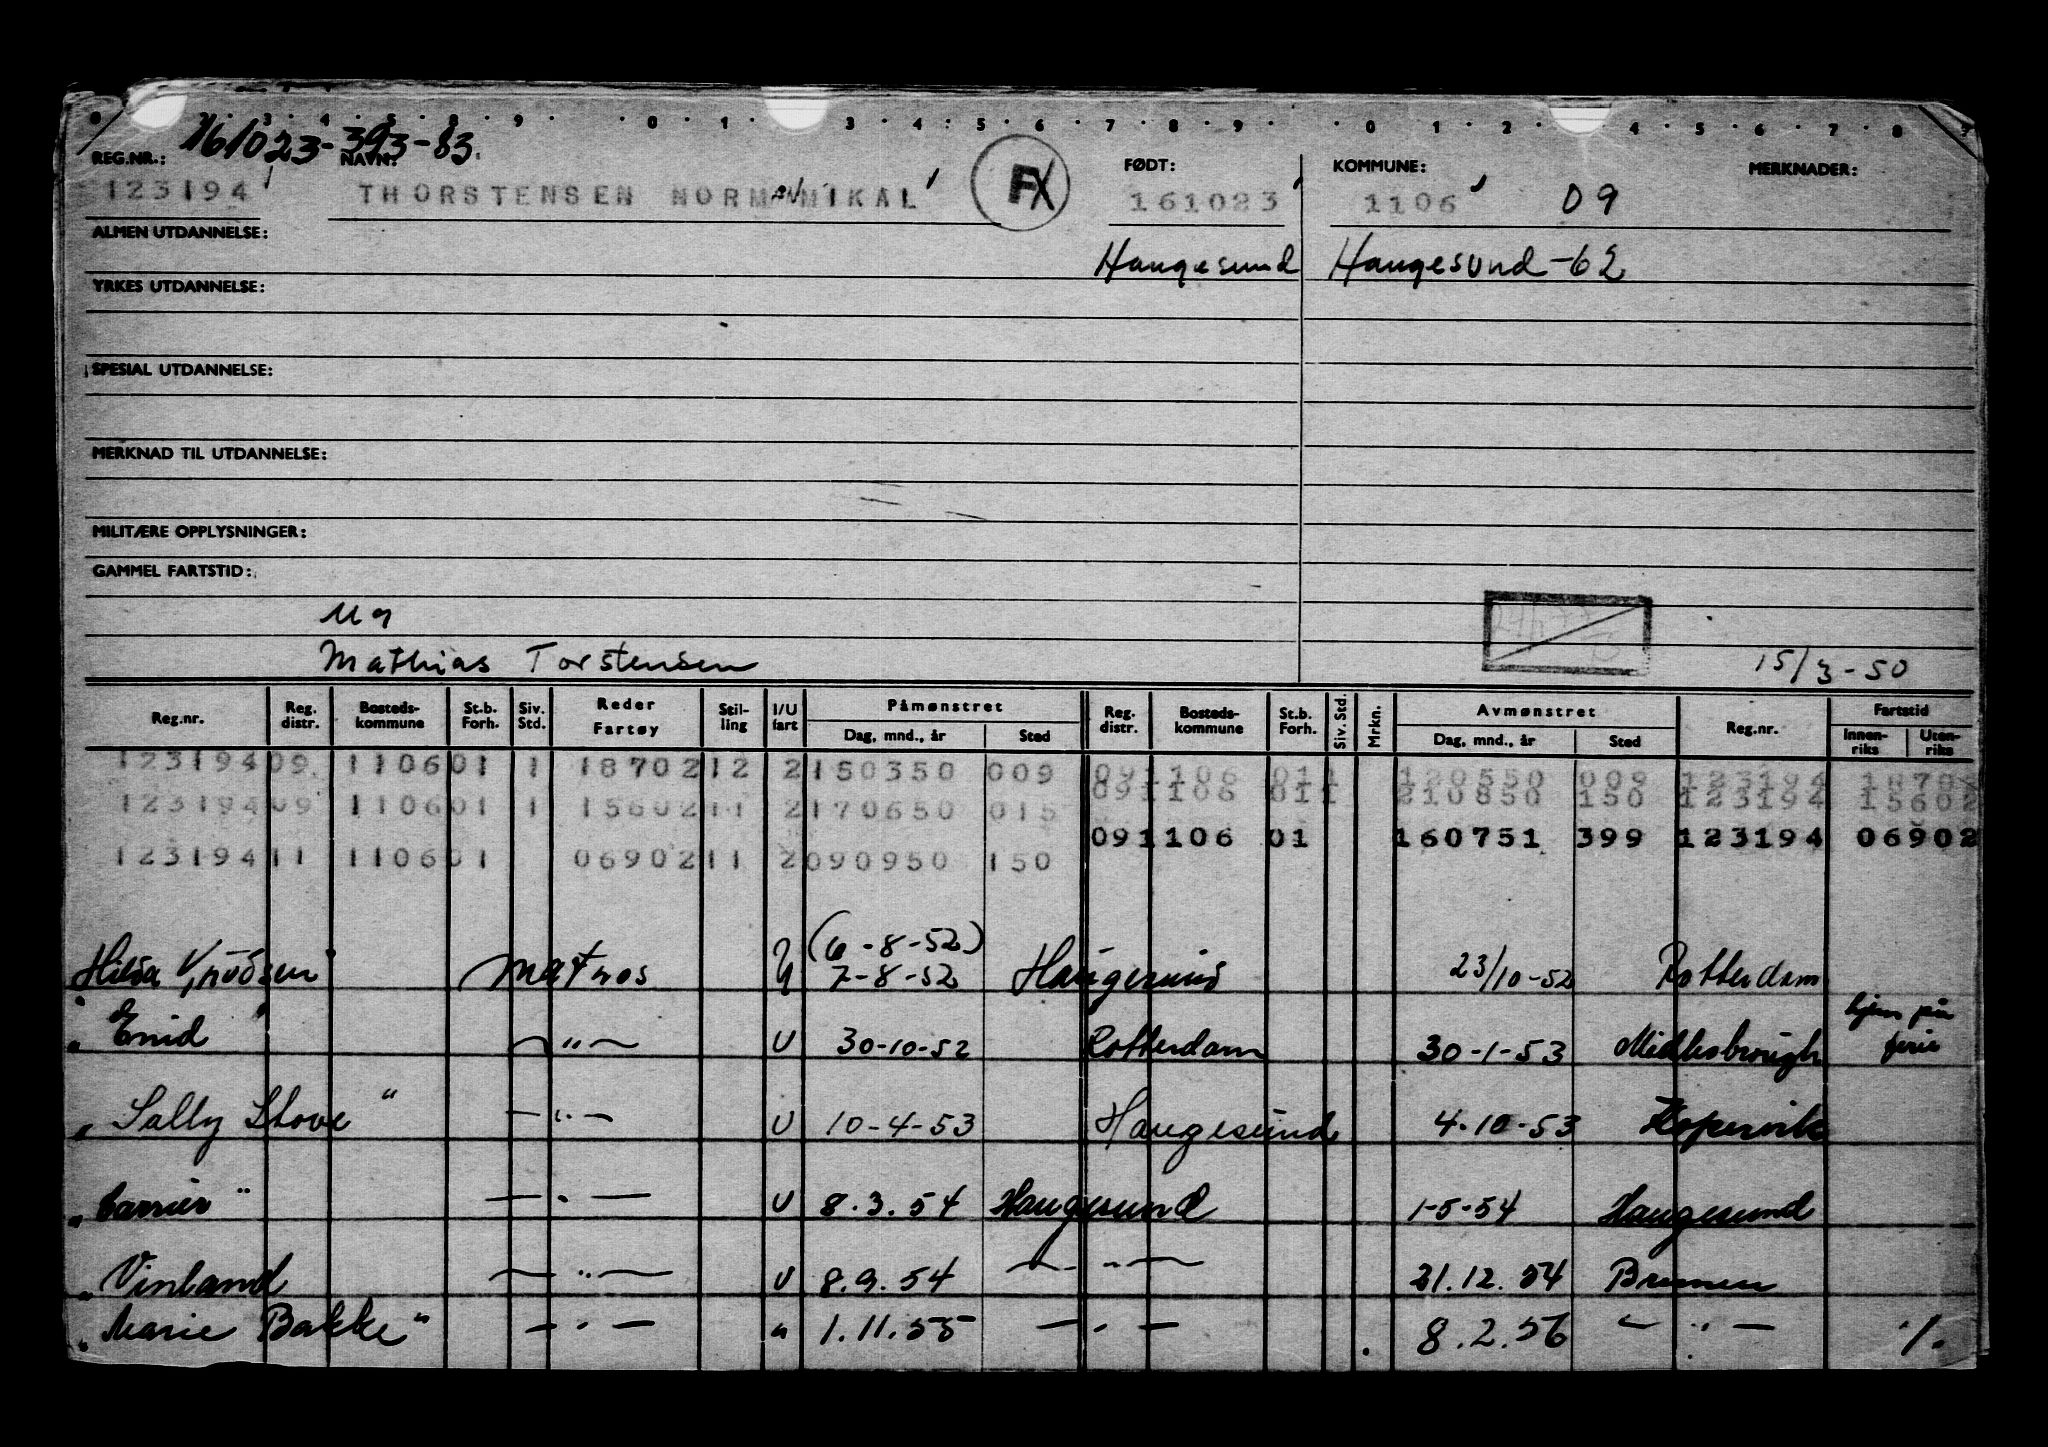 161023-393-83
REG.NR.: NAVN: FØDT: KOMMUNE: MERKNADER:
123194 THORSTENSEN NORMAN MIKAL FX 161023 1106 09
ALMEN UTDANNELSE: Haugesund Haugesund-62
YRKES UTDANNELSE:
SPESIAL UTDANNELSE:
MERKNAD TIL UTDANNELSE:
MILITÆRE OPPLYSNINGER:
GAMMEL FARTSTID:
Mathias Torstensen 15/3-50
Reg.nr. Reg. distr. Bosteds-kommune St.b. Forh. Siv. Std. Reder Fartøy Stil-ling I/U fart Påmønstret Dag, mnd., år Sted Reg. distr. Bosteds-kommune St.b. Forh. Siv. Std. Mrkn. Avmønstret Dag, mnd., år Sted Reg.nr. Fartstid Innen-riks Uten-riks
123194 09 1106 01 1 18702 12 2 150350 009 091106 011 120550 009 123194 18702
123194 09 1106 01 1 15602 11 2 170650 015 091106 011 210850 150 123194 15602
091106 01 160751 399 123194 06902
123194 11 1106 01 06902 11 2 090950 150
(6-8-52)
Hilda Knudsen matros U 7-8-52 Haugesund 23/10-52 Rotterdam
" Enid " — " — U 30-10-52 Rotterdam 30-1-53 Middlesbrough hjem på ferie
" Sally Stove " — " — U 10-4-53 Haugesund 4-10-53 Kopervik
" Carrier " — " — U 8.3.54 Haugesund 1-5-54 Haugesund
" Vinland — " — U 8.9.54 — " — 21.12.54 Bremen
" Marie Bakke " — " — " 1.11.55 — " — 8.2.56 — " — ./.